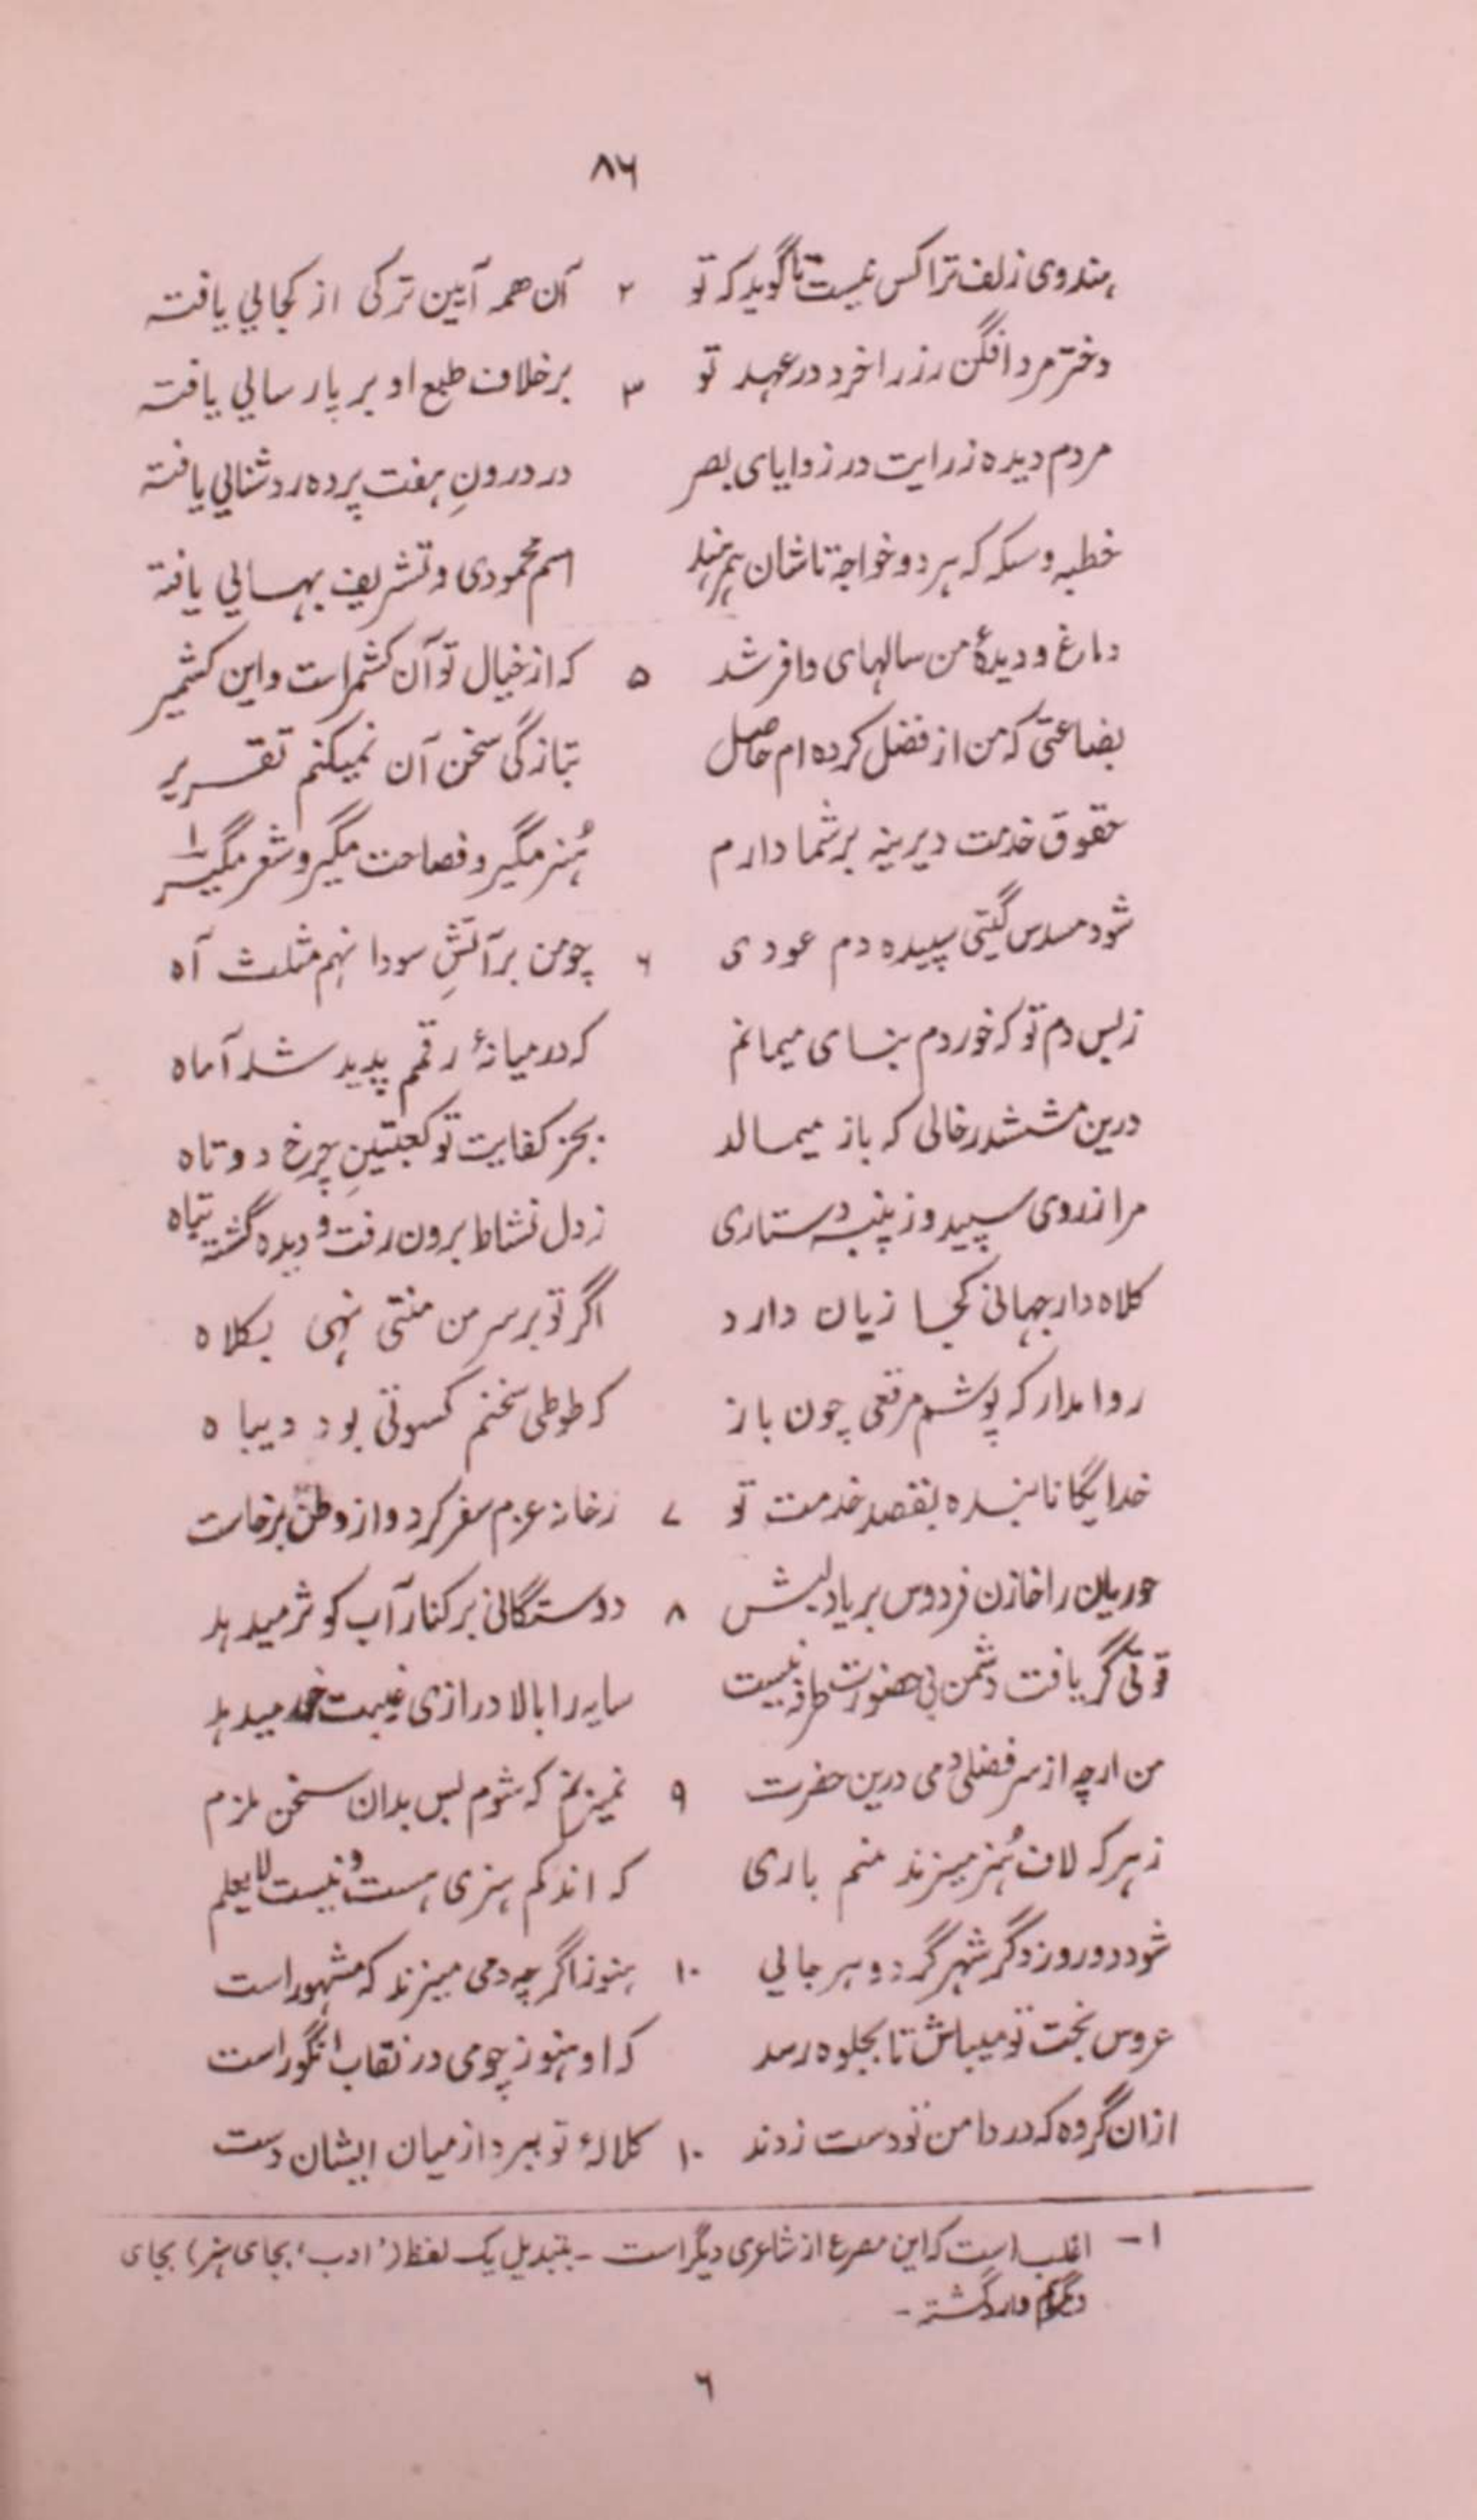 ۸۶
هندوی زلف ترا کس نیست تا گوید که تو ۲ آن همه آیین ترکی از کجایی یافته
دختر مرد افگن رز را خرد در عهد تو ۳ بر خلاف طبع او بر پارسایی یافته
مردم دیده ز رایت در زوایای بصر در درونِ هفت پرده روشنایی یافته
خطبه و سکه که هر دو خواجه تاشان همند اسم محمودی و تشریف بهایی یافته
دماغ و دیدهٔ من سالهای وافر شد ۵ که از خیال تو آن کشمر است و این کشمیر
بضاعتی که من از فضل کرده ام حاصل بتازگی سخن آن نمیکنم تقریر
حقوق خدمت دیرینه بر شما دارم هُنر مگیر و فصاحت مگیر و شعر مگیر ۱
شود مسدس گیتی سپیده دم عودی ۶ چو من بر آتشِ سودا نهم مثلث آه
ز بس دم تو که خوردم بنای میمانم که در میانهٔ رقمم پدید شد آماه
درین مششدر خالی که باز میمالد بجز کفایت تو کعبتینِ چرخ دوتاه
مرا ز روی سپید و ز پنبه دستاری ز دل نشاط برون رفت و دیده گشته تباه
کلاه دار جهانی کجا زیان دارد اگر تو بر سر من منتی نهی بکلاه
روا مدار که پوشم مرقعی چون باز که طوطی سخنم کسوتی بود دیباه
خدایگانا بنده بقصد خدمت تو ۷ ز خانه عزم سفر کرد و از وطن برخاست
حوریان را خازن فردوس بر یاد لبش ۸ دوستگانی بر کنار آب کوثر میدهد
قوتی گر یافت دشمن بی حضورت طرفه نیست سایه را بالا درازی غیبت خور میدهد
من ارچه از سر فضلی دمی درین حضرت ۹ نمیزنم که شوم بس بدان سخن ملزم
ز هر که لاف هُنر میزند منم باری که اندکم هنری هست و نیست لایعلم
شود دو روز دگر شهر گرد و هر جایی ۱۰ هنوز اگر چه دمی میزند که مشهور است
عروس بخت تو میباش تا بجلوه رسد که او هنوز چو می در نقاب انگور است
ازان گروه که در دامن تو دست زدند ۱۰ کلالهٔ تو ببرد از میان ایشان دست
۱ – اغلب است که این مصرع از شاعری دیگر است – بتبدیل یک لفظ ('ادب' بجای هنر) بجای
دگرم وارد گشته –
۶